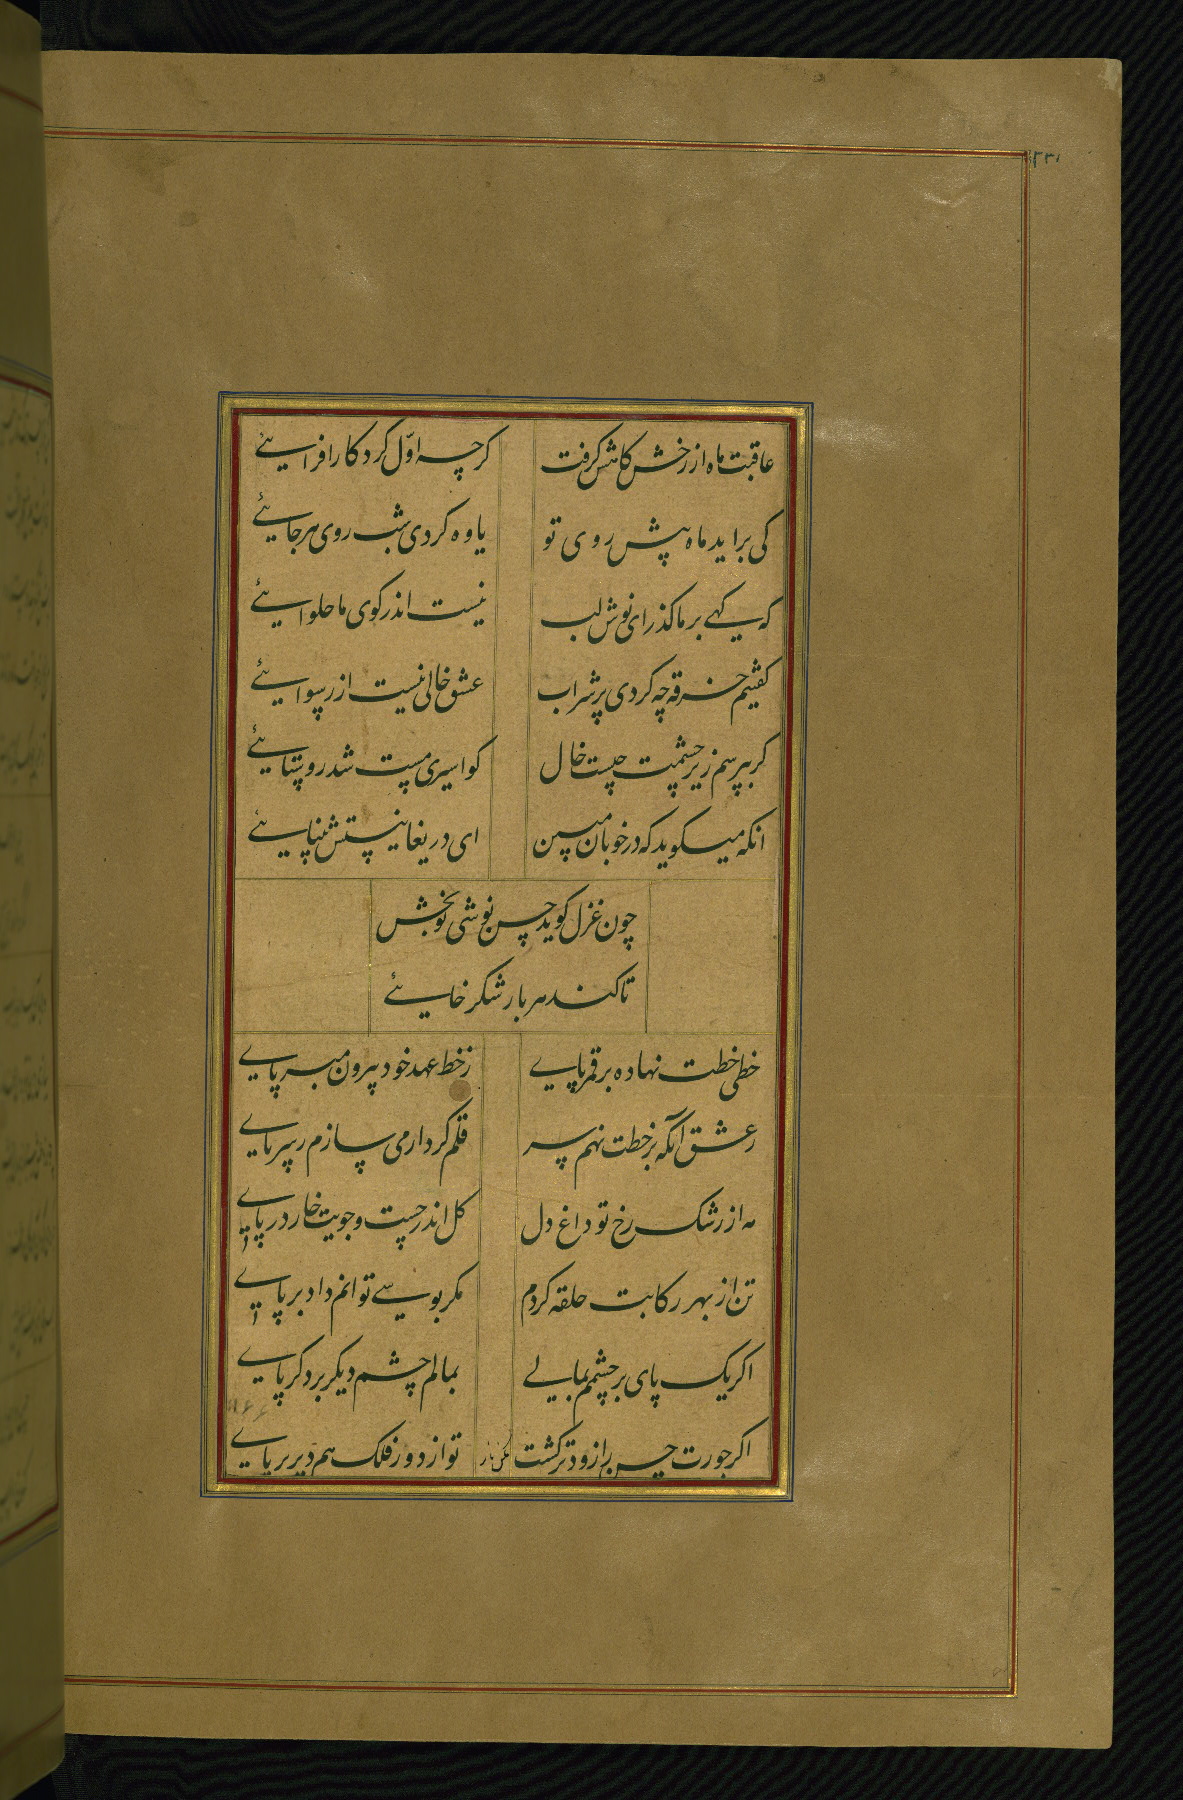 عاقبت ماه از رخش کاهش گرفت کرچه اوّل کرد کار افزایئے
کی براید ماه پیش روی تو یاوه کردی شب روی هرجایئے
که کهے بر ما کذر ای نوش لب نیست اندر کوی ما حلوایئے
کفتیم خرقه چه کردی پر شراب عشق خالی نیست از رسوایئے
کر بپرسم زیر چشمت چیست خال کو اسیری مست شد روستایئے
انکه میکوید که در خوبان مبین ای دریغا نیستش بینایئے
چون غزل کوید حسن نوشی بخش
تا کند هر بار شکر خایئے
خطی خطت نهاده بر قمر پایے ز خط عهد خود بیرون مبر پایے
ز عشق انکه بر خطت نهم سر قلم کردار می سازم ز سر پایے
مه از رشک رخ تو داغ دل کل اندر جست و جویت خار در پایے
تن از بهر رکابت حلقه کردم مکر بوسے توانم داد بر پایے
اکر یک پای بر چشمم بمالے بمالم چشم دیکر بر دکر پایے
اکر جورت حسن را زود تر کشت تو از دور فلک هم دیر بر پایے